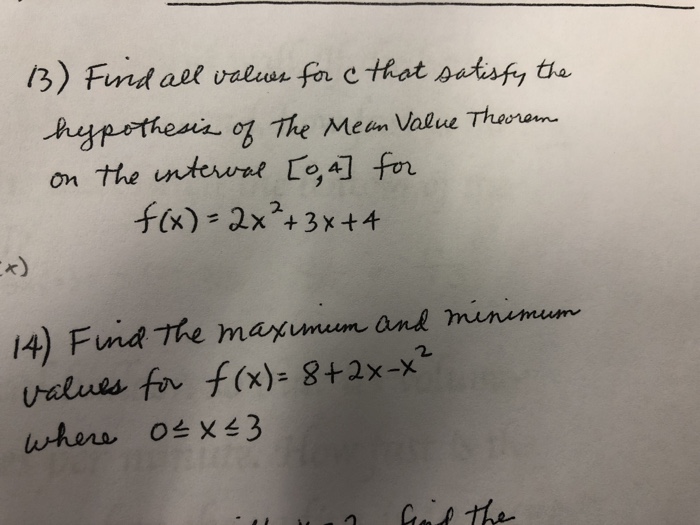 13) Find all values for c that satisfy the
hypothesis of The Mean Value Theorem
on the interval [0,4] for
f(x) = 2x²+3x+4
x)
14) Find the maximum and minimum
values for f(x)= 8+2x-x²
where 0≤x≤3
find the